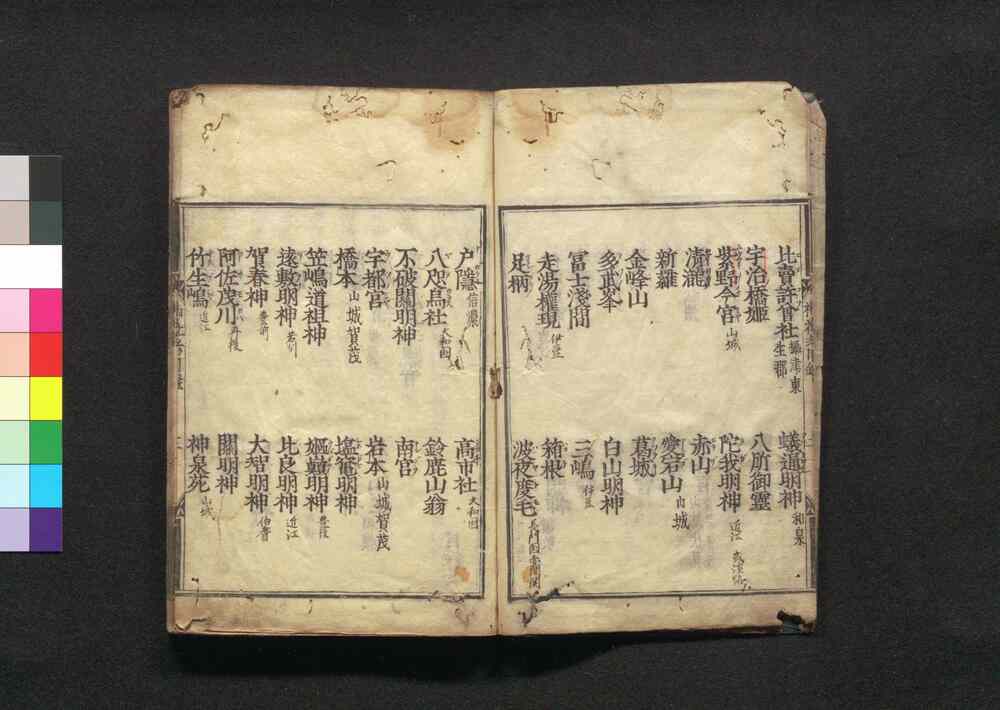 比賣許曾社 攝津東生郡
蟻通明神 和泉
宇治橋姬
八所御靈
紫野今宮 山城
陀我明神 近江
清瀧
赤山
新羅
愛宕山 山城
金峰山
葛城
多武峯
白山明神
冨士淺間
三嶋 伊豆
走湯權現 伊豆
箱根
足柄
戸隱 信濃
高市社 大和国
八咫烏社 大和国
鈴鹿山翁
不破關明神
南宮
宇都宮
岩本 山城賀茂
橋本 山城賀茂
塩竈明神
笠嶋道祖神
遠敷明神 若州
比良明神 近江
賀春神 豊前
大智明神 伯耆
阿佐茂川 丹後
關明神
竹生嶋 近江
神泉苑 山城